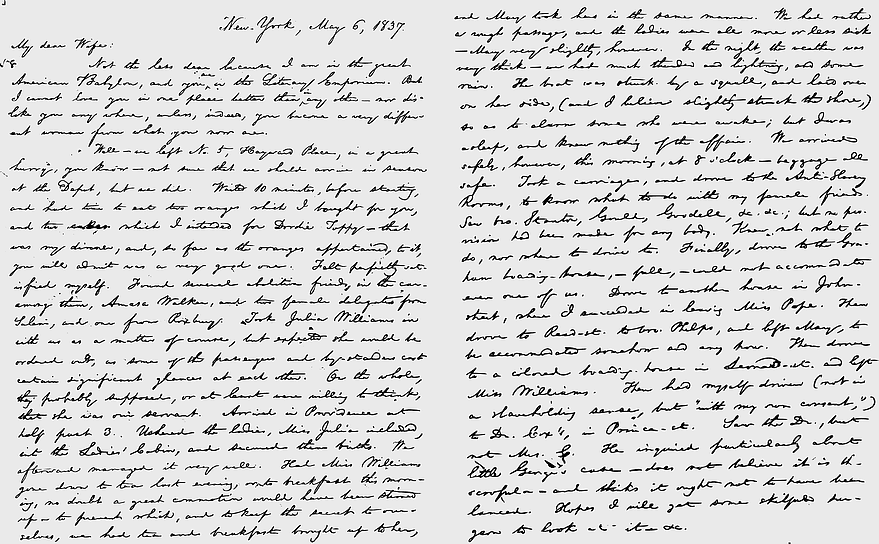 New-York, May 6, 1837.
My dear Wife:
Not the less dear because I am in the great
American Babylon, and you are in the Literary Emporium. But
I cannot love you in one place better than any other — nor dis-
like you any where, unless, indeed, you become a very differ-
ent woman from what you now are.
Well — we left No. 5, Hayward Place, in a great
hurry, you know — not sure that we should arrive in season
at the Depot, but we did. Waited 10 minutes, before starting,
and had time to eat two oranges which I bought for you,
and two cakes which I intended for Dordie Toppy — that
was my dinner, and, so far as the oranges appertained to it,
you will admit was a very good one. Felt perfectly sat-
isfied myself. Found several abolition friends in the car—
among them, Amasa Walker, and two female delegates from
Salem, and one from Roxbury. Took Julia Williams in
with us as a matter of course, but expected she would be
ordered out, as some of the passengers and by-standers cast
certain significant glances at each other. On the whole,
they probably supposed, or at least were willing to think,
that she was our servant. Arrived in Providence at
half past 3. Ushered the ladies, Miss Julia included,
into the Ladies' Cabin, and secured their births. We
afterward managed it very well. Had Miss Williams
gone down to tea last evening, or to breakfast this morn-
ing, no doubt a great commotion would have been stirred
up — to prevent which, and to keep the secret to our-
selves, we had tea and breakfast brought up to her,
and Mary took hers in the same manner. We had rather
a rough passage, and the ladies were all more or less sick
— Mary very slightly, however. In the night, the weather was
very thick — we had much thunder and lightning, and some
rain. The boat was struck by a squall, and laid over
on her side, (and I believe slightly struck the shore,)
so as to alarm some who were awake; but I was
asleep, and knew nothing of the affair. We arrived
safely, however, this morning, at 8 o'clock — baggage all
safe. Took a carriage, and drove to the Anti-Slavery
Rooms, to know what to do with my female friends.
Saw bro. Stanton, Gould, Goodell, &c. &c.; but no pro-
vision had been made for any body. Knew not what to
do, nor where to drive to. Finally, drove to the Gra-
ham boarding-house, — full, — could not accommodate
even one of us. Drove to another house in John-
street, where I succeeded in leaving Miss Pope. Then
drove to Read-st. to bro. Phelps, and left Mary, to
be accommodated somehow and any how. Then drove
to a colored boarding-house in Leonard-st. and left
Miss Williams. Then had myself driven (not in
a slaveholding sense, but "with my own consent,")
to Dr. Cox's, in Prince-st. Saw the Dr., but
not Mrs. C. He inquired particularly about
little George's case — does not believe it is
scrofula — and thinks it ought not to have been
lanced. Hopes I will get some skilful sur-
geon to look at it — &c.